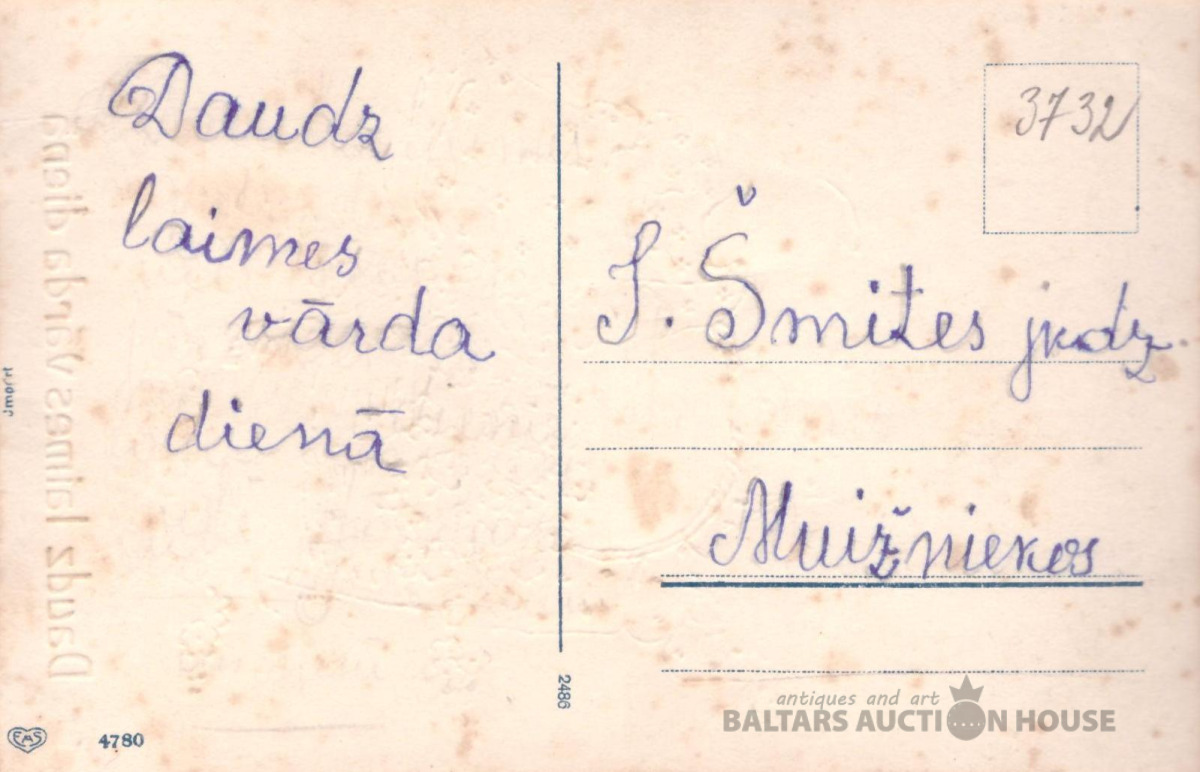 Daudz
laimes
vārda
dienā
3732
S. Šmites jkdz
Muižniekos
Daudz laimes vārda dienā
2486
EAS
4780
antiques and art
BALTARS AUCTION HOUSE